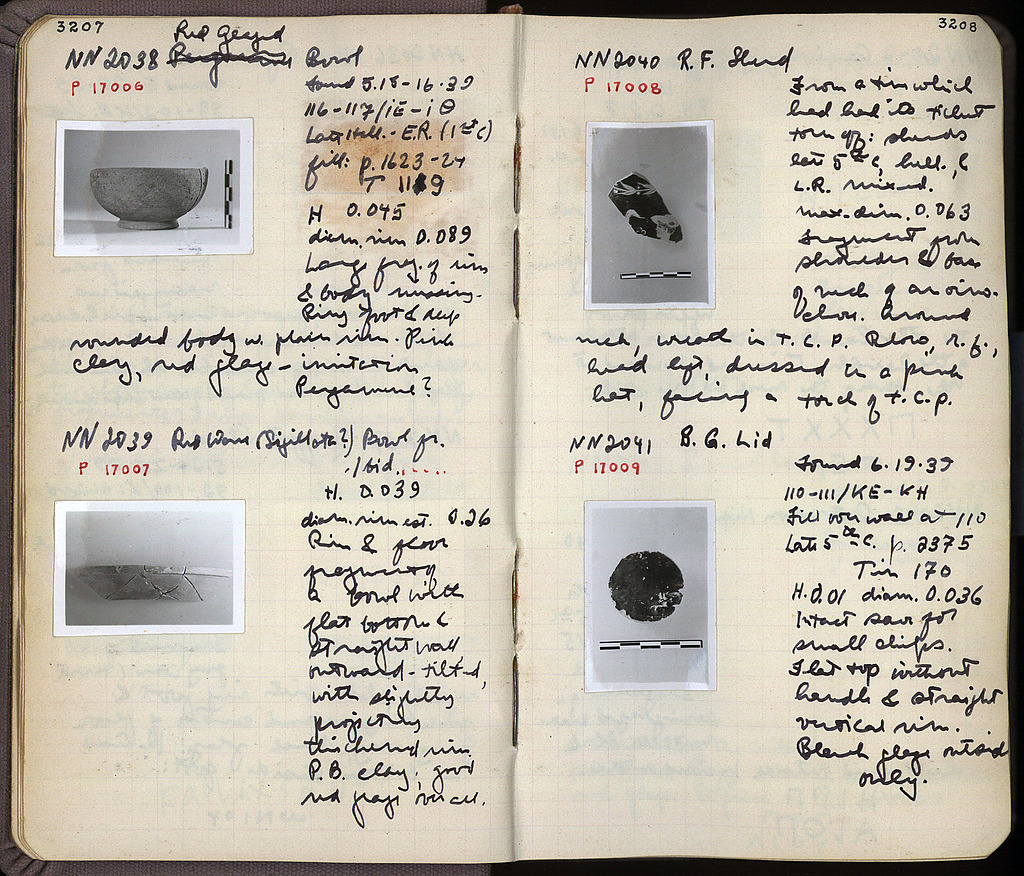 3207
Red Glazed
NN 2038 Pergamene Bowl
P 17006
found 5.15-16.39
116-117/ΙΕ-ΙΘ
Late Hell.-E.R. (1st c)
fill: p. 1623-24
T 119
H 0.045
diam. rim 0.089
Large frag. of rim
& body missing.
Ring foot & deep
rounded body w. plain rim. Pink
clay, red glaze - imitation
Pergamene?
NN 2039 Red Ware (Sigillata?) Bowl fr.
P 17007
Ibid......
H. 0.039
diam. rim est. 0.26
Rim & floor
fragments
a bowl with
flat bottom &
straight wall
outward-tilted,
with slightly
projecting
thickened rim.
P.B. clay; good
red glaze over all.
3208
NN 2040 R.F. Sherd
P 17008
From a tin which
had had its ticket
torn off: sherds
late 5th c, hell., &
L.R. mixed.
max. dim. 0.063
Fragment from
shoulder & base
of neck of an oino-
choe. Around
neck, wreath in T.C.P. Below, r.f.,
head left, dressed in a
hat, facing a torch of T.C.P.
NN 2041 B.G. Lid
P 17009
Found 6.19.39
110-111/ΚΕ-ΚΗ
Fill over wall at 110
Late 5th c. p. 2375
Tin 170
H. 0.01 diam. 0.036
Intact save for
small chips.
Flat top without
handle & straight
vertical rim.
Black glaze outside
only.